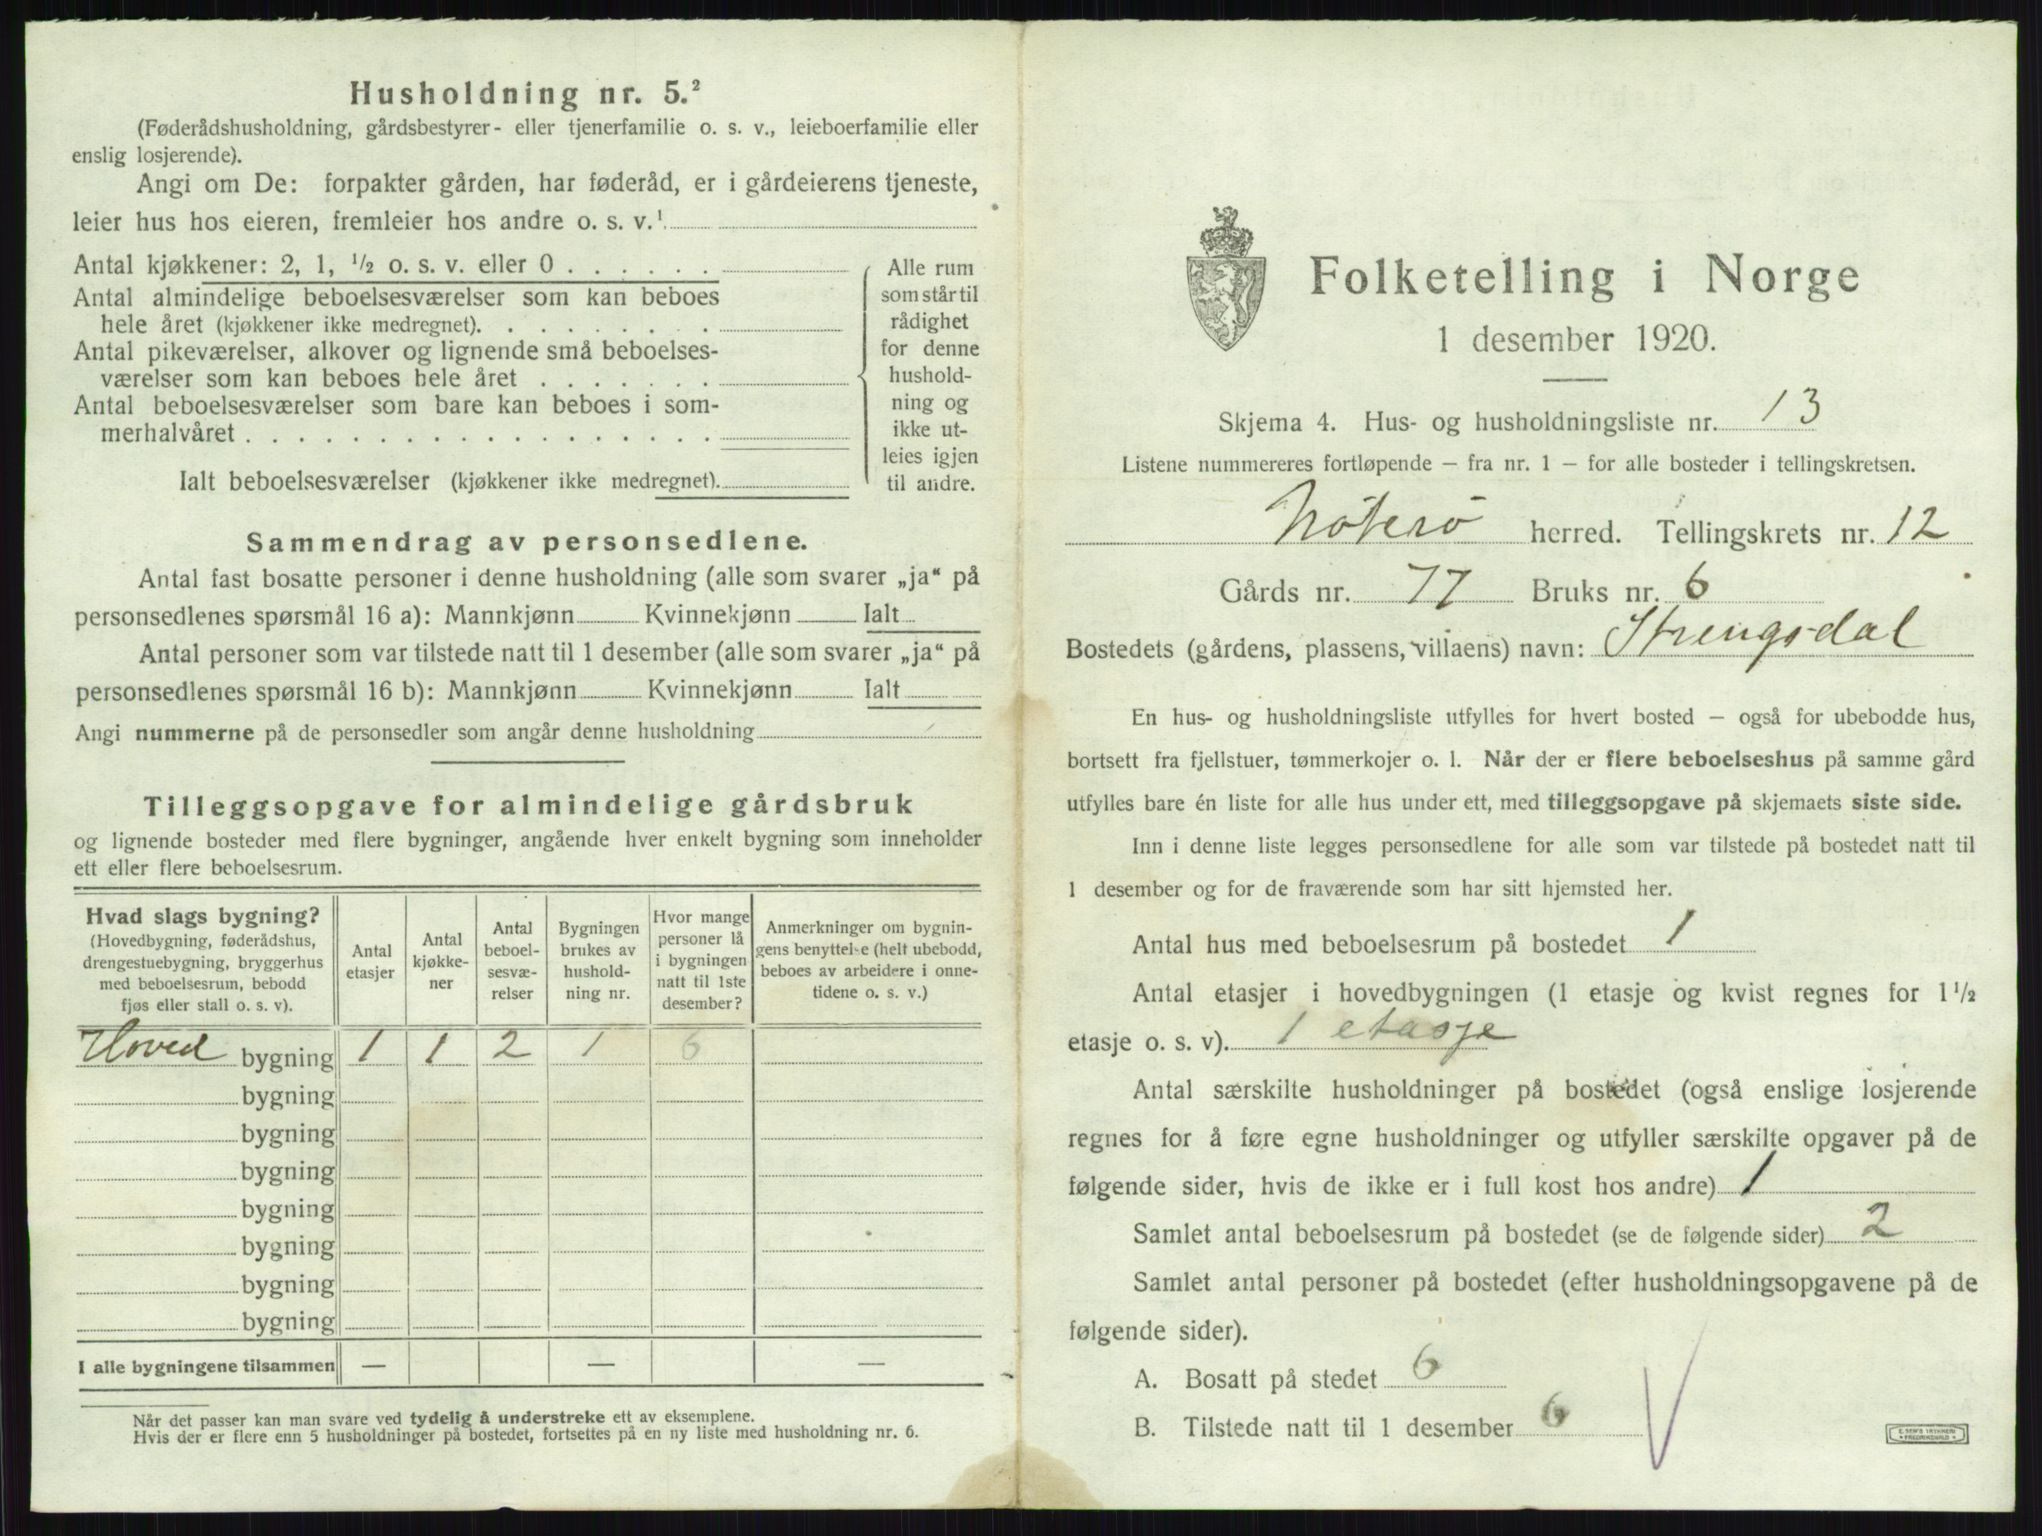 Husholdning nr. 5.²
(Føderådshusholdning, gårdsbestyrer- eller tjenerfamilie o. s. v., leieboerfamilie eller
enslig losjerende).
Angi om De: forpakter gården, har føderåd, er i gårdeierens tjeneste,
leier hus hos eieren, fremleier hos andre o. s. v.¹
Antal kjøkkener: 2, 1, ½ o. s. v. eller 0 . . . . . .
Antal almindelige beboelsesværelser som kan beboes
hele året (kjøkkener ikke medregnet). . . . . . . . .
Antal pikeværelser, alkover og lignende små beboelses-
værelser som kan beboes hele året . . . . . . .
Antal beboelsesværelser som bare kan beboes i som-
merhalvåret . . . . . . . . . . . . . . . . . .
Ialt beboelsesværelser (kjøkkener ikke medregnet).
Alle rum
som står til
rådighet
for denne
hushold-
ning og
ikke ut-
leies igjen
til andre.
Sammendrag av personsedlene.
Antal fast bosatte personer i denne husholdning (alle som svarer „ja“ på
personsedlenes spørsmål 16 a): Mannkjønn Kvinnekjønn Ialt
Antal personer som var tilstede natt til 1 desember (alle som svarer „ja“ på
personsedlenes spørsmål 16 b): Mannkjønn Kvinnekjønn Ialt
Angi nummerne på de personsedler som angår denne husholdning
Tilleggsopgave for almindelige gårdsbruk
og lignende bosteder med flere bygninger, angående hver enkelt bygning som inneholder
ett eller flere beboelsesrum.
Hvad slags bygning?
(Hovedbygning, føderådshus,
drengestuebygning, bryggerhus
med beboelsesrum, bebodd
fjøs eller stall o. s. v).
Antal
etasjer
Antal
kjøkke-
ner
Antal
beboel-
sesvæ-
relser
Bygningen
brukes av
hushold-
ning nr.
Hvor mange
personer lå
i bygningen
natt til 1ste
desember?
Anmerkninger om bygnin-
gens benyttelse (helt ubebodd,
beboes av arbeidere i onne-
tidene o. s. v.)
Hoved bygning 1 1 2 1 6
bygning
bygning
bygning
bygning
bygning
bygning
bygning
I alle bygningene tilsammen — — —
Når det passer kan man svare ved tydelig å understreke ett av eksemplene.
Hvis der er flere enn 5 husholdninger på bostedet, fortsettes på en ny liste med husholdning nr. 6.
Folketelling i Norge
1 desember 1920.
Skjema 4. Hus- og husholdningsliste nr. 13
Listene nummereres fortløpende — fra nr. 1 — for alle bosteder i tellingskretsen.
Nøterø herred. Tellingskrets nr. 12
Gårds nr. 77 Bruks nr. 6
Bostedets (gårdens, plassens, villaens) navn: Strengsdal
En hus- og husholdningsliste utfylles for hvert bosted — også for ubebodde hus,
bortsett fra fjellstuer, tømmerkojer o. l. Når der er flere beboelseshus på samme gård
utfylles bare én liste for alle hus under ett, med tilleggsopgave på skjemaets siste side.
Inn i denne liste legges personsedlene for alle som var tilstede på bostedet natt til
1 desember og for de fraværende som har sitt hjemsted her.
Antal hus med beboelsesrum på bostedet 1
Antal etasjer i hovedbygningen (1 etasje og kvist regnes for 1½
etasje o. s. v). 1 etasje
Antal særskilte husholdninger på bostedet (også enslige losjerende
regnes for å føre egne husholdninger og utfyller særskilte opgaver på de
følgende sider, hvis de ikke er i full kost hos andre) 1
Samlet antal beboelsesrum på bostedet (se de følgende sider) 2
Samlet antal personer på bostedet (efter husholdningsopgavene på de
følgende sider).
A. Bosatt på stedet 6
B. Tilstede natt til 1 desember 6